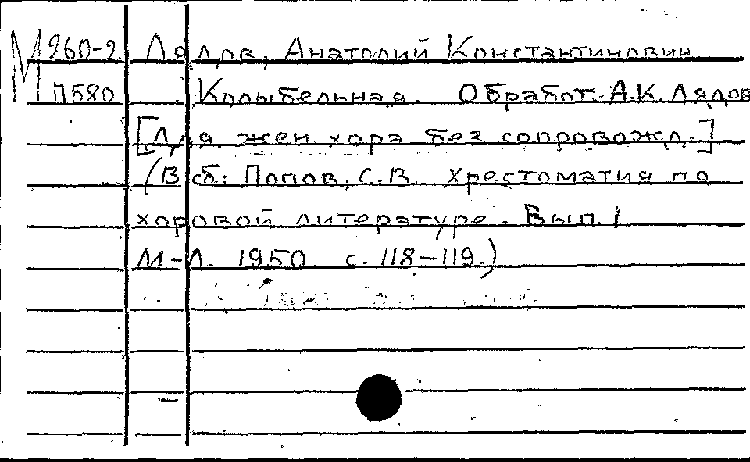 М 260-2 Лядов, Анатолий Константинович
1580 Колыбельная. Обработ. А.К. Лядов
[Для жен хора без сопровожд.]
(В сб: Попов, С.В. Хрестоматия по
хоровой литературе. Вып. 1
М-Л. 1950 с. 118-119.)